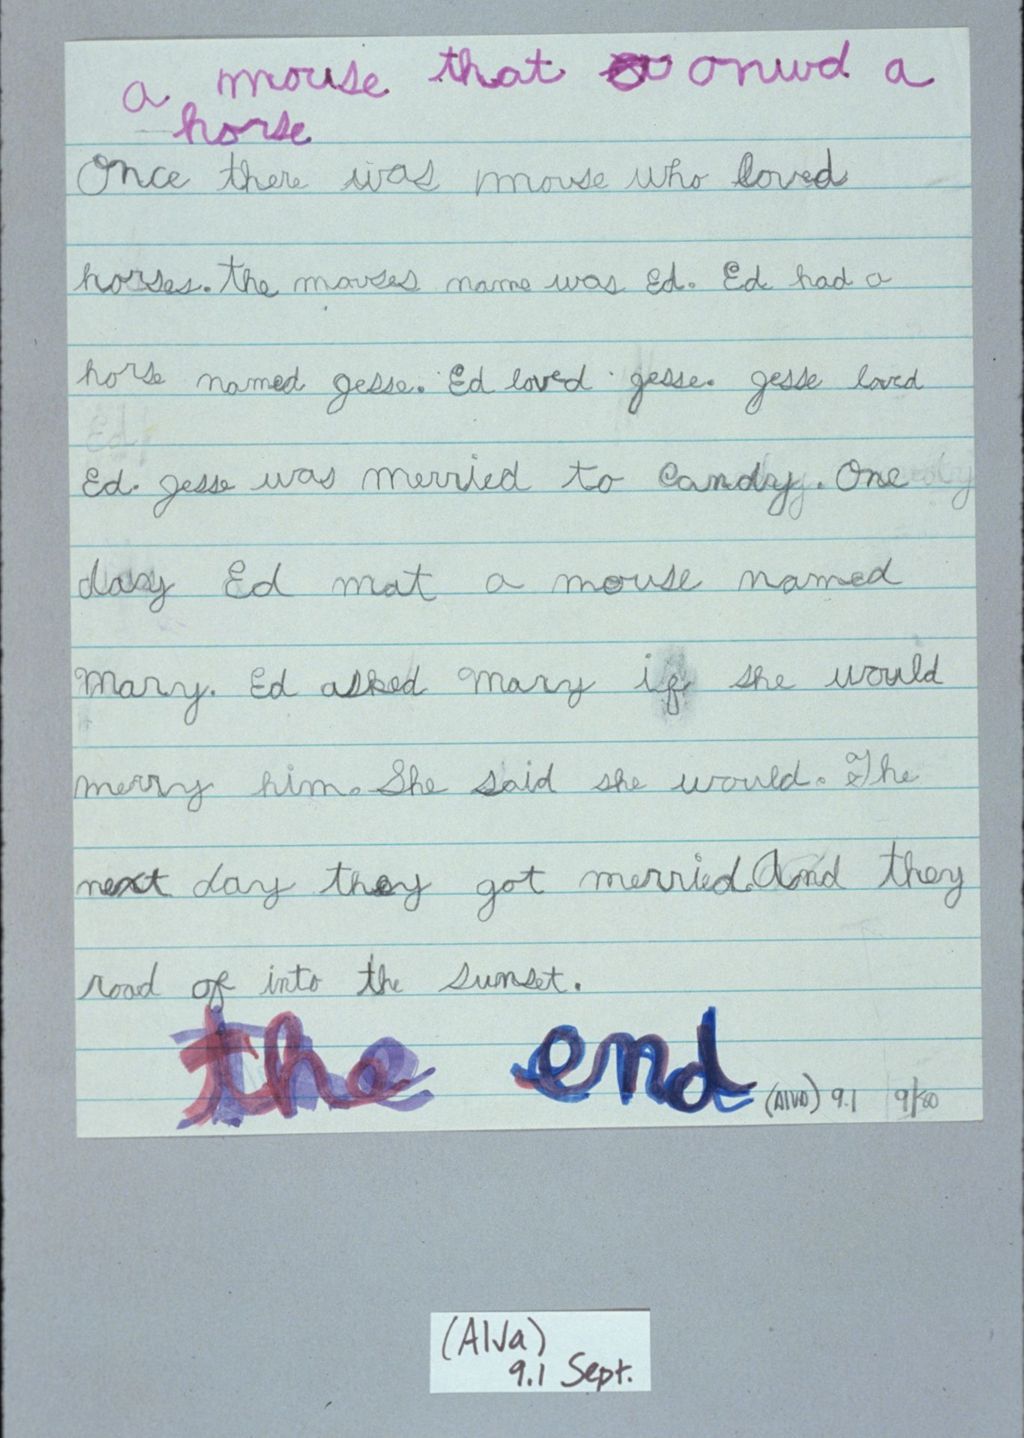 a mouse that onwd a
horse
Once there was mouse who loved
horses. the mouses name was Ed. Ed had a
horse named gesse. Ed loved gesse. gesse loved
Ed. gesse was merried to Candy. One
day Ed mat a mouse named
Mary. Ed asked Mary if she would
merry him. She said she would. The
next day they got merried. And they
road of into the sunset.
the end
(Alva) 9.1 9/80
(Alva)
9.1 Sept.